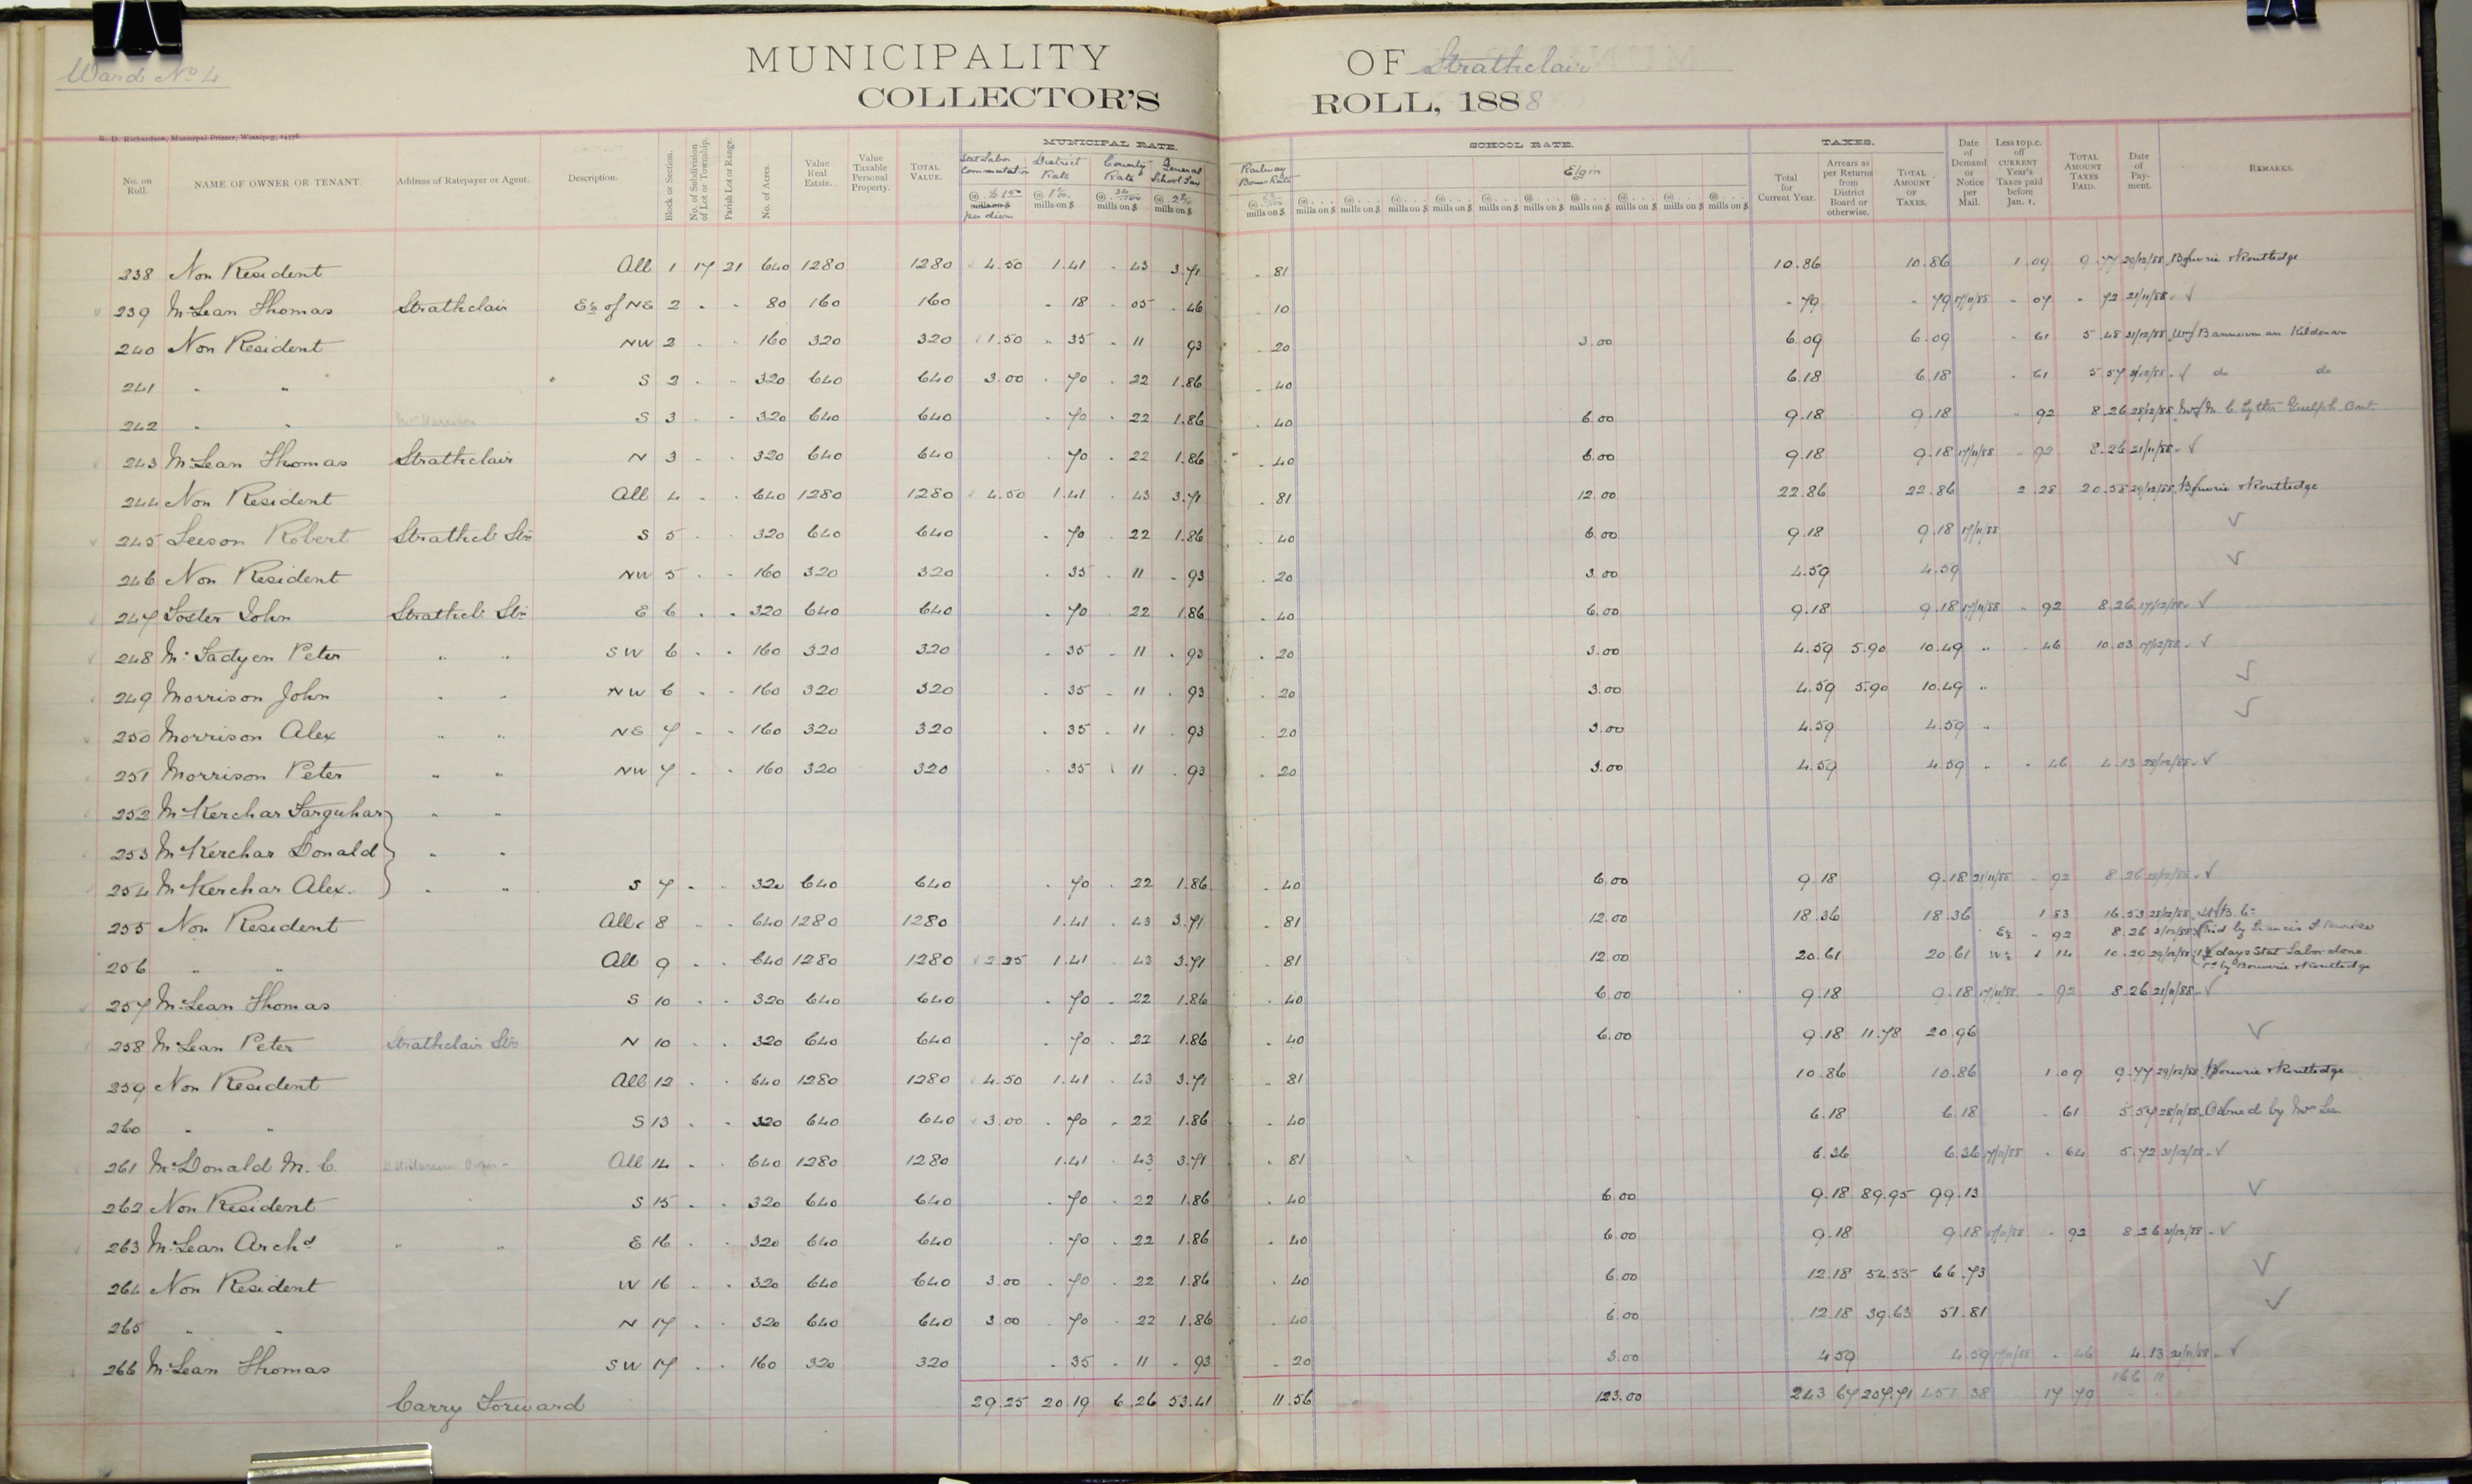 Ward No 4
MUNICIPALITY OF Strathclair
COLLECTOR'S ROLL, 1888
R. D. Richardson, Municipal Printer, Winnipeg,
MUNICIPAL RATE. SCHOOL RATE. TAXES.
No. on Roll. NAME OF OWNER OR TENANT. Address of Ratepayer or Agent. Description. Block or Section. No. of Subdivision of Lot or Township. Parish Lot or Range. No. of Acres. Value Real Estate. Value Taxable Personal Property. TOTAL VALUE. Stat Labor Commutation @ $1.50 mills on $ per diem District Rate @ mills on $ County Rate @ mills on $ General School Tax @ mills on $ Railway Bonus Rate @ mills on $ Elgin Total for Current Year. Arrears as per Returns from District Board or otherwise. TOTAL AMOUNT OF TAXES. Date of Demand or Notice per Mail. Less 10 p.c. off CURRENT Year's Taxes paid before Jan. 1. TOTAL AMOUNT TAXES PAID. Date of Payment. REMARKS.
238 Non Resident All 1 17 21 640 1280 1280 4.50 1.41 . 43 3.71 . 81 10.86 10.86 1.09 9.77 29/12/88 Bouverie & Routledge
239 McLean Thomas Strathclair E½ of NE 2 " " 80 160 160 . 18 . 05 . 46 . 10 . 79 . 79 17/11/88 . 07 . 72 21/11/88 ✓
240 Non Resident NW 2 " " 160 320 320 1.50 . 35 . 11 93 . 20 3.00 6.09 6.09 . 61 5.48 31/12/88 Bannerman Kildonan
241 " " S 2 " " 320 640 640 3.00 . 70 . 22 1.86 . 40 6.18 6.18 . 61 5.57 31/12/88 ✓ do do
242 " " S 3 " " 320 640 640 . 70 . 22 1.86 . 40 6.00 9.18 9.18 92 8.26 28/12/88 Guelph Ont
243 McLean Thomas Strathclair N 3 " " 320 640 640 . 70 . 22 1.86 . 40 6.00 9.18 9.18 17/11/88 . 92 8.26 21/11/88 ✓
244 Non Resident All 4 " " 640 1280 1280 4.50 1.41 . 43 3.71 . 81 12.00 22.86 22.86 2.28 20.58 29/12/88 Bouverie & Routledge
245 Leeson Robert Strathcl. Stn S 5 " " 320 640 640 . 70 . 22 1.86 . 40 6.00 9.18 9.18 17/11/88 ✓
246 Non Resident NW 5 " " 160 320 320 . 35 . 11 . 93 . 20 3.00 4.59 4.59 ✓
247 Foster John Strathcl. Stn E 6 " " 320 640 640 . 70 . 22 1.86 . 40 6.00 9.18 9.18 17/11/88 . 92 8.26 17/12/88 ✓
248 McFadyen Peter " " SW 6 " " 160 320 320 . 35 . 11 . 93 . 20 3.00 4.59 5.90 10.49 " . 46 10.03 17/12/88 ✓
249 Morrison John " " NW 6 " " 160 320 320 . 35 . 11 . 93 . 20 3.00 4.59 5.90 10.49 " ✓
250 Morrison Alex " " NE 7 " " 160 320 320 . 35 . 11 . 93 . 20 3.00 4.59 4.59 " ✓
251 Morrison Peter " " NW 7 " " 160 320 320 . 35 11 . 93 . 20 3.00 4.59 4.59 " . 46 4.13 28/12/88 ✓
252 McKerchar Farquhar " "
253 McKerchar Donald " "
254 McKerchar Alex. " " S 7 " " 320 640 640 . 70 . 22 1.86 . 40 6.00 9.18 9.18 21/11/88 . 92 8.26 28/12/88 ✓
255 Non Resident All 8 " " 640 1280 1280 1.41 . 43 3.71 . 81 12.00 18.36 18.36 1 83 16.53 28/12/88
E½ " 92 8.26 Paid by Francis
256 " " All 9 " " 640 1280 1280 2.25 1.41 . 43 3.71 . 81 12.00 20.61 20.61 W½ 1 14 10.29 29/12/88 1½ days Stat Labor done
Pd by Bouverie & Routledge
257 McLean Thomas S 10 " " 320 640 640 . 70 . 22 1.86 . 40 6.00 9.18 9.18 17/11/88 . 92 8.26 21/11/88 ✓
258 McLean Peter Strathclair Stn N 10 " " 320 640 640 . 70 . 22 1.86 . 40 6.00 9.18 11.78 20.96 ✓
259 Non Resident All 12 " " 640 1280 1280 4.50 1.41 . 43 3.71 . 81 10.86 10.86 1.09 9.77 29/12/88 Bouverie & Routledge
260 " " S 13 " " 320 640 640 3.00 . 70 . 22 1.86 . 40 6.18 6.18 . 61 5.57 28/11/88 Owned by Mr Lee
261 McDonald M. C. All 14 " " 640 1280 1280 1.41 . 43 3.71 . 81 6.36 6.36 17/11/88 . 64 5.72 31/12/88 ✓
262 Non Resident S 15 " " 320 640 640 . 70 . 22 1.86 . 40 6.00 9.18 89.95 99.13 ✓
263 McLean Archd " " E 16 " " 320 640 640 . 70 . 22 1.86 . 40 6.00 9.18 9.18 17/11/88 . 92 8.26 31/12/88 ✓
264 Non Resident W 16 " " 320 640 640 3.00 . 70 . 22 1.86 . 40 6.00 12.18 54.55 66.73 ✓
265 " " N 17 " " 320 640 640 3 00 . 70 . 22 1.86 . 40 6.00 12.18 39.63 51.81 ✓
266 McLean Thomas SW 17 " " 160 320 320 . 35 . 11 . 93 . 20 3.00 4 59 4.59 17/11/88 . 46 4.13 21/11/88 ✓
166 11
Carry Forward 29.25 20.19 6.26 53.41 11.56 123.00 243 67 207.71 451.38 17 79